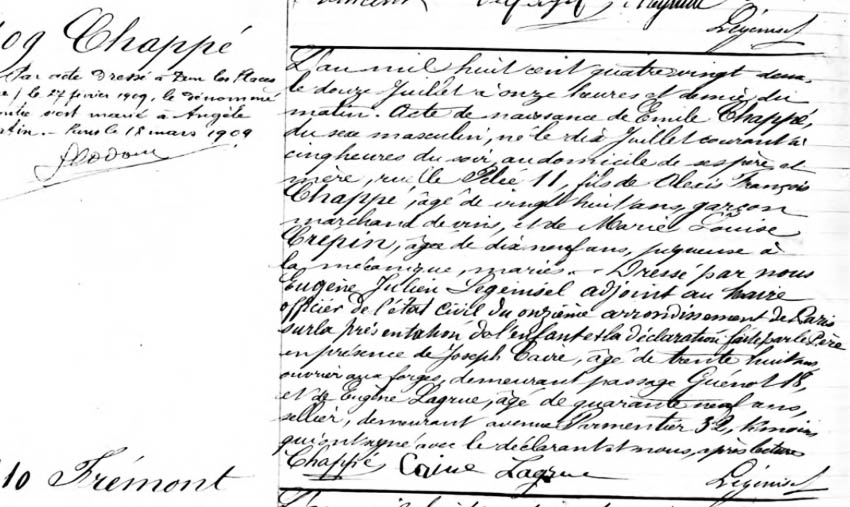 Légénisel
09 Chappé
Par acte dressé à Dun les Places
le 27 février 1909, le dénommé
contre s'est marié à Angèle
tin. Paris le 18 mars 1909
L'an mil huit cent quatre vingt deux,
le douze Juillet à onze heures et demie du
matin. Acte de naissance de Emile Chappé,
du sexe masculin, né le dix Juillet courant à
cinq heures du soir, au domicile de ses père et
mère, ruelle Pelée 11, fils de Alexis François
Chappé, âgé de vingt huit ans, garçon
marchand de vins, et de Marie Louise
Crépin, âgée de dix neuf ans, piqueuse à
la mécanique, mariés. Dressé par nous
Eugène Julien Légénisel adjoint au maire
officier de l'état civil du onzième arrondissement de Paris
sur la présentation de l'enfant et la déclaration faite par le Père
en présence de Joseph Caire, âgé de trente huit ans,
ouvrier aux forges, demeurant passage Guénot 18,
et de Eugène Lagrue, âgé de quarante neuf ans,
sellier, demeurant avenue Parmentier 32, témoins
qui ont signé avec le déclarant et nous, après lecture
Chappé Caire Lagrue Légénisel
10 Frémont